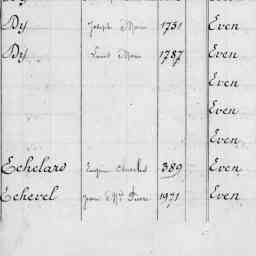 Dy Joseph Marie 1751 Even
Dy Louis Marie 1787 Even
Even
Even
Even
Echelard Eugène Charles 389 Even
Echevel Jean Pierre 1971 Even